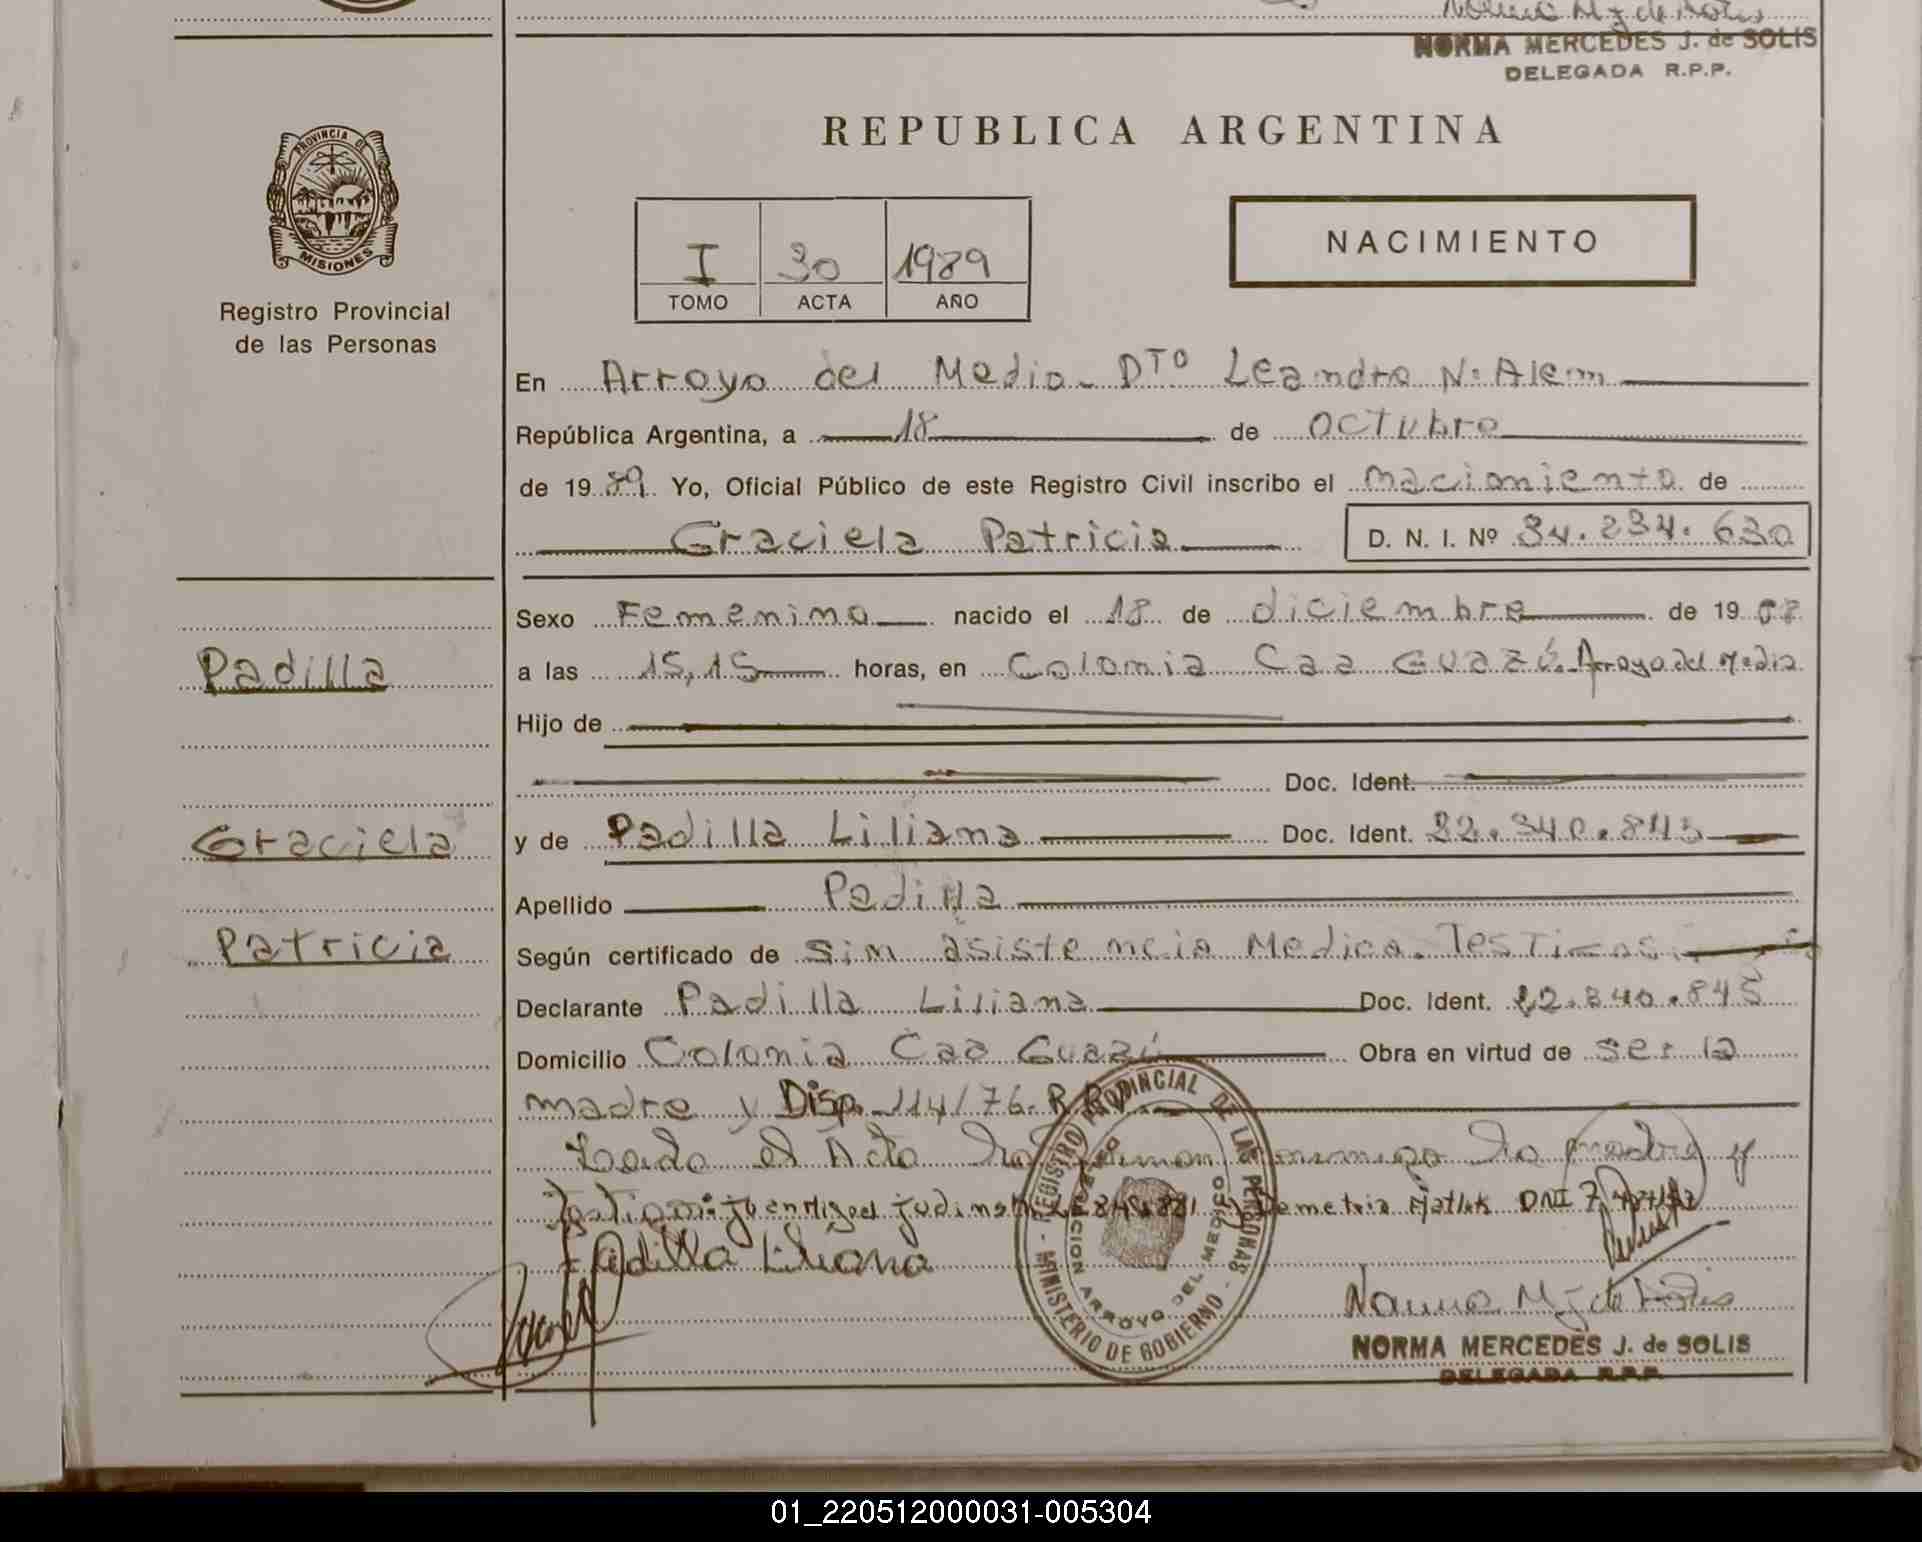 NORMA MERCEDES J. de SOLIS
DELEGADA R.P.P.
PROVINCIA DE
MISIONES
Registro Provincial
de las Personas
REPUBLICA ARGENTINA
I 30 1989
TOMO ACTA AÑO
NACIMIENTO
En Arroyo del Medio - DTO Leandro N. Alem
República Argentina, a 18 de octubre
de 1989 Yo, Oficial Público de este Registro Civil inscribo el nacimiento de
Graciela Patricia D. N. I. Nº 34.234.630
Sexo Femenino nacido el 18 de diciembre de 19
Padilla
a las 15,15 horas, en Colonia Caa Guazú. Arroyo del Medio
Hijo de
Doc. Ident.
Graciela
y de Padilla Liliana Doc. Ident. 22.340.845
Apellido Padilla
Patricia
Según certificado de sin asistencia Medica. Testigos
Declarante Padilla Liliana Doc. Ident. 22.340.845
Domicilio Colonia Caa Guazú Obra en virtud de ser la
madre y Disp. 114/76. R.R.P.
Leido el Acta la firman conmigo la madre y
testigos: Juan Miguel y Demetrio DNI 7.
Padilla Liliana
REGISTRO PROVINCIAL DE LAS PERSONAS - MINISTERIO DE GOBIERNO -
ARROYO DEL MEDIO
NORMA MERCEDES J. de SOLIS
DELEGADA R.P.P.
01_220512000031-005304